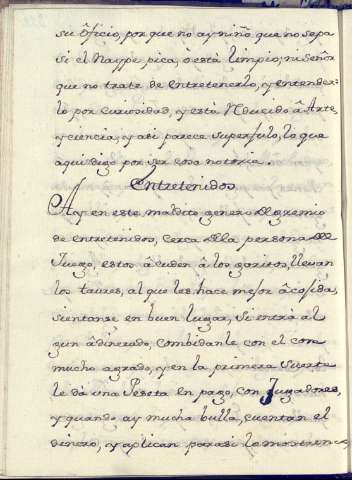 su ôficio, por que no ay niño que no sepa
si el Naype pica, ò està limpio; ni Señor
que no trate de entretenerlo, y entender-
lo por curiosidad, y està Rducido â Arte,
y ciencia; y asi parece superfulo, lo que
aqui digo por ser cosa notoria.
Entretenidos
Ay en este maldito genero del gremio
de entretenidos, cerca della persona del
Juego, estos âcuden â los garitos, llevan
los taures, al que les hace mejor âcojida,
sientanse en buen lugar, si entra al
gun âdinerado, combidanle con el con
mucho agrado, y en la primera suerte
le dà una Peseta en pago, con Jugadores,
y quando ay mucha bulla, cuentan el
dinero, y aplican parasi lo mostrenco,